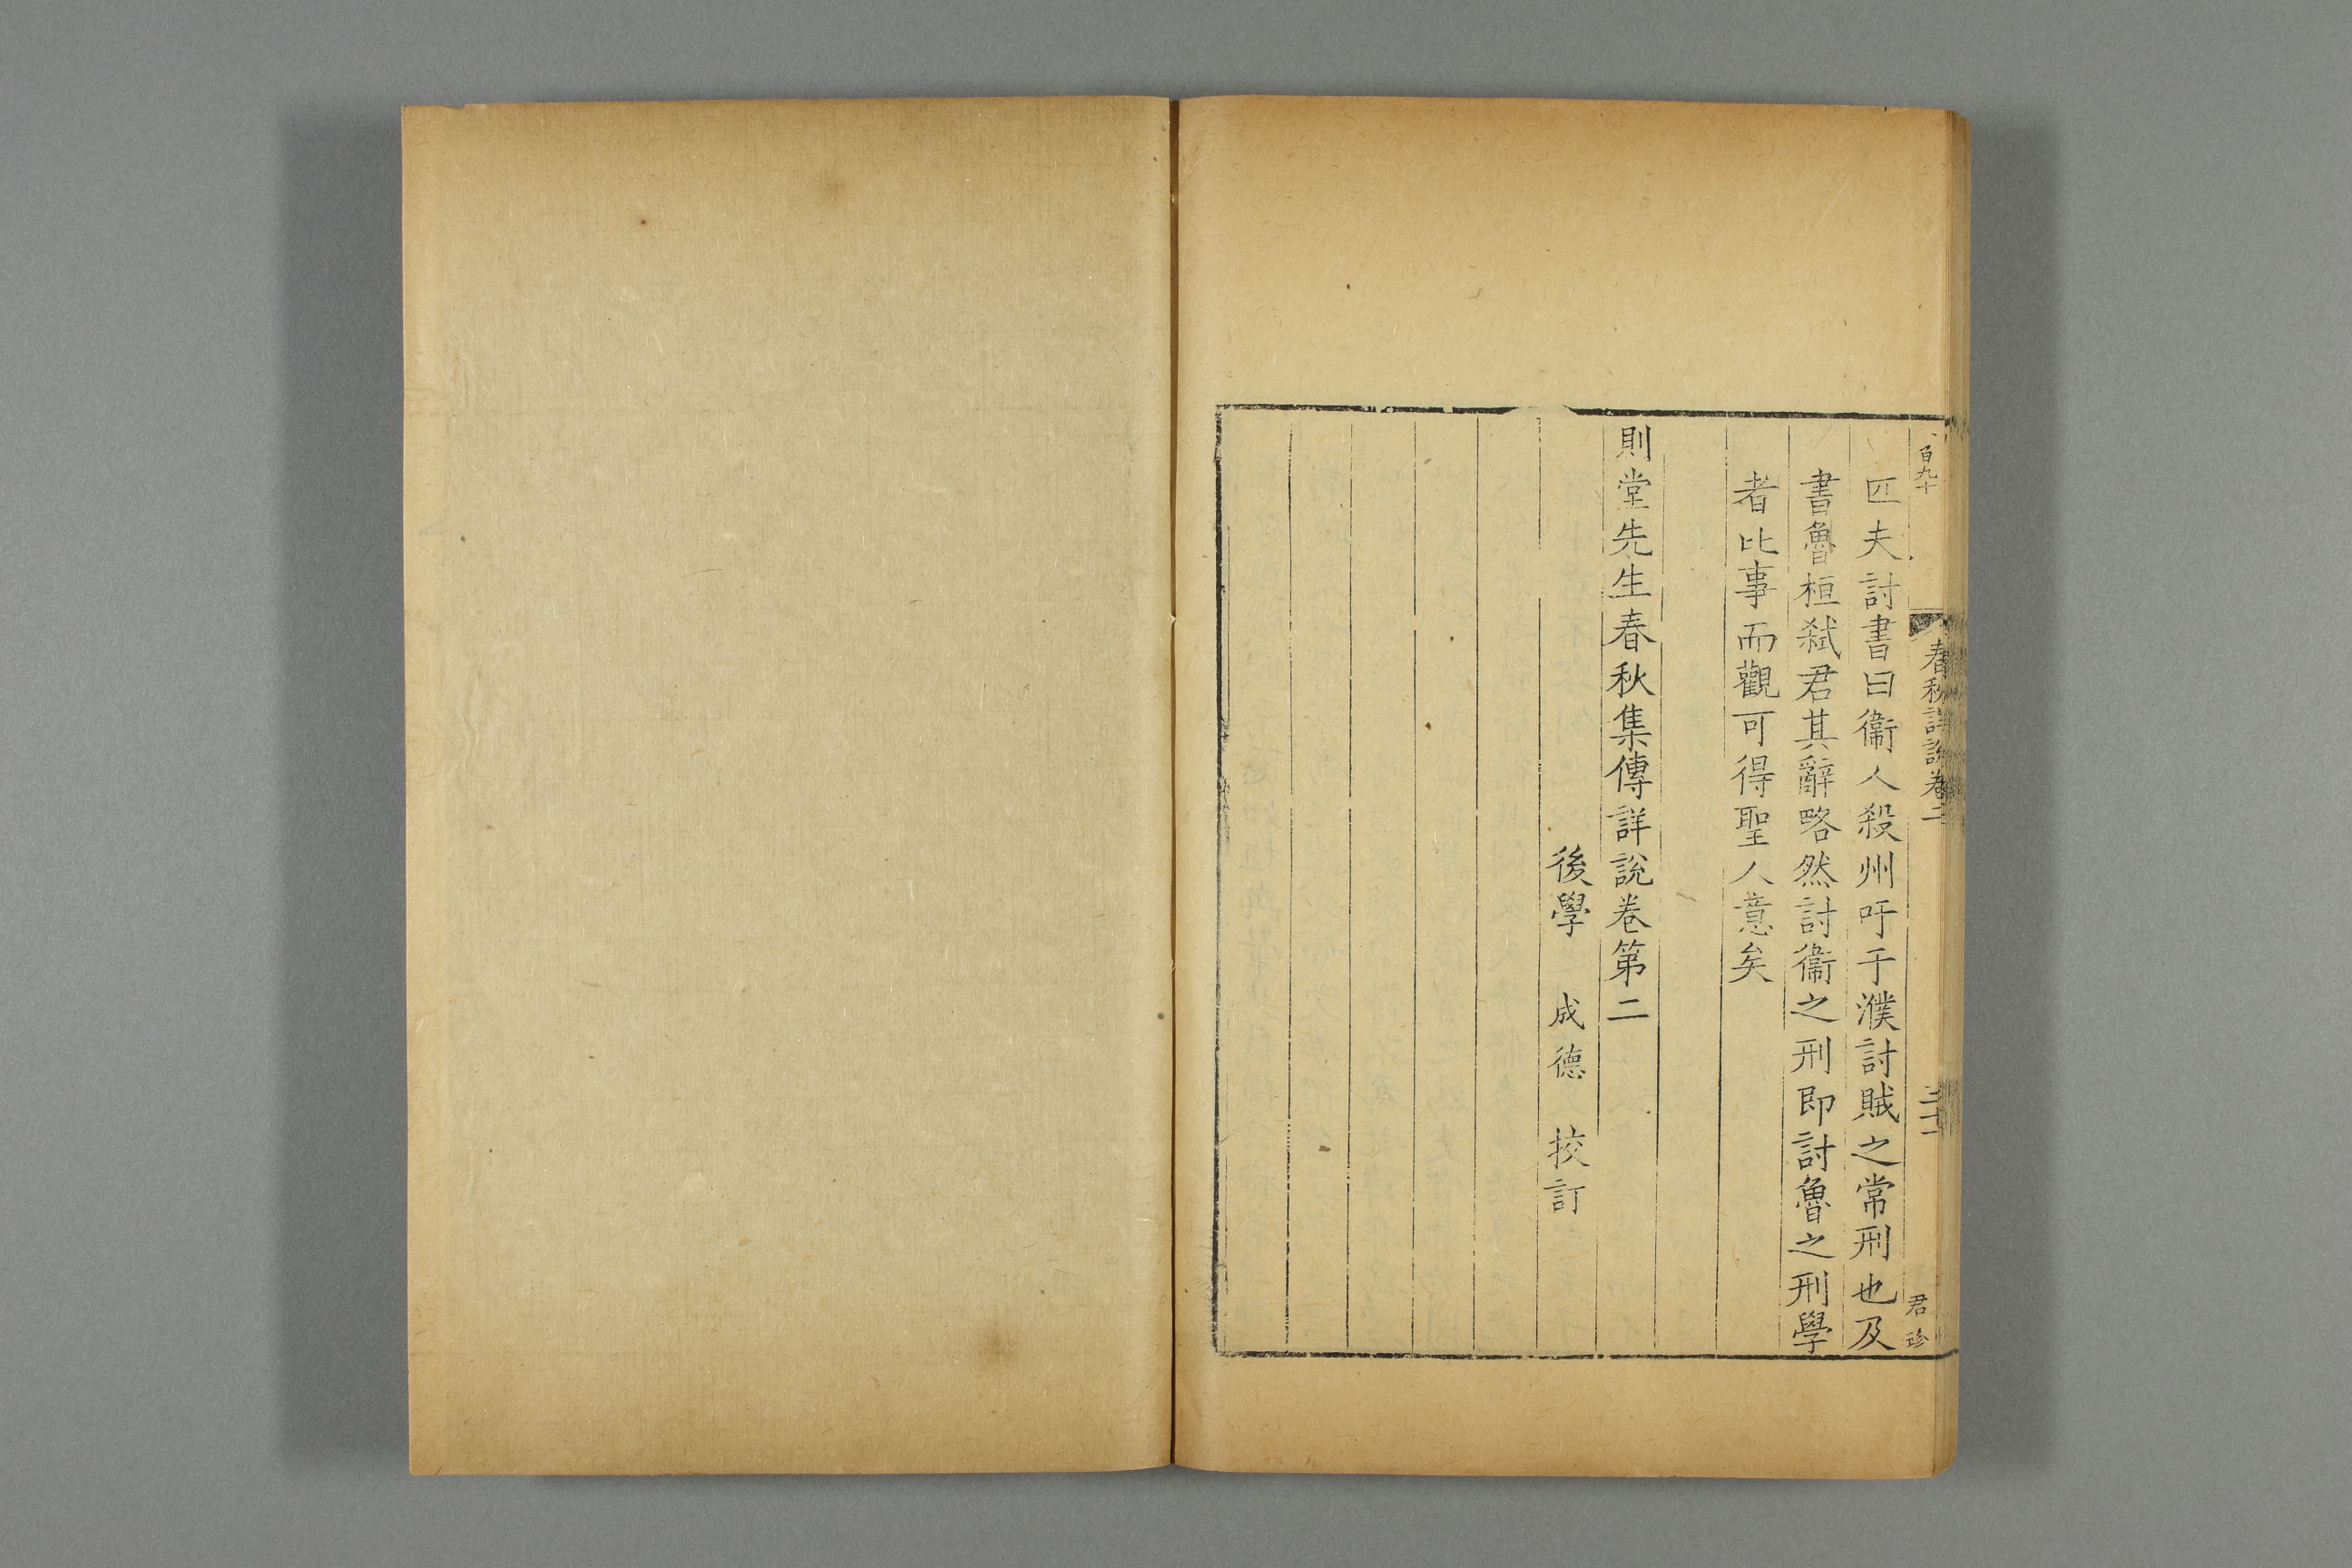 百九十
春秋詳說卷二
三十一
君珍
匹夫討書曰衞人殺州吁于濮討賊之常刑也及
書魯桓弑君其辭略然討衞之刑即討魯之刑學
者比事而觀可得聖人意矣
則堂先生春秋集傳詳說卷第二
後學 成德 挍訂